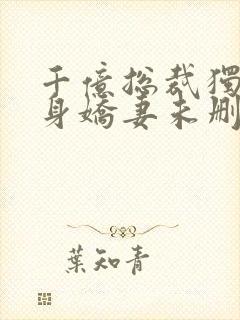 千億總裁獨
身嬌妻未刪
葉知青